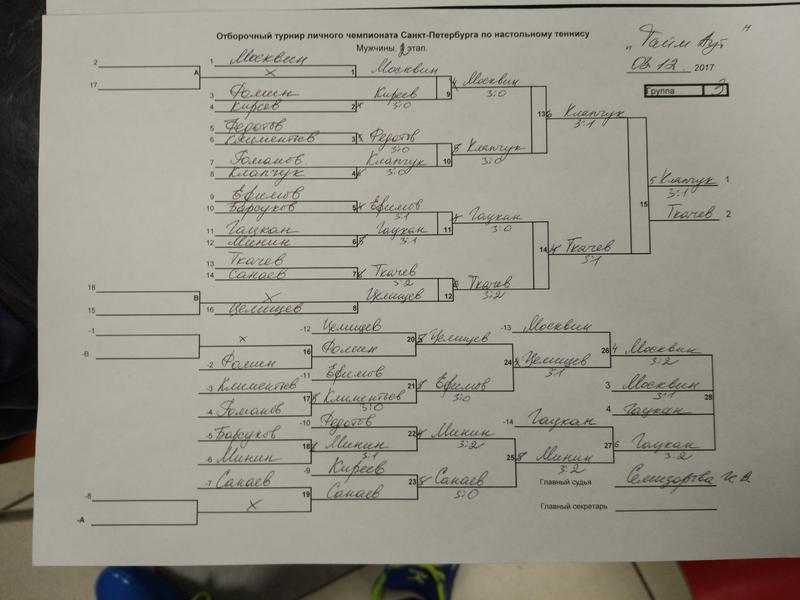 Отборочный турнир личного чемпионата Санкт-Петербурга по настольному теннису
Мужчины. 2 этап.
"Тайм Аут"
03.12 2017
Группа 3
2
17
A
1 Москвин
x
1
Москвин
3 Фомин
4 Киреев
2
Киреев
3:0
9
Москвин
3:0
5 Федотов
6 Климентьев
3
Федотов
3:0
7 Гоманов
8 Клапчук
4
Клапчук
3:0
10
Клапчук
3:0
13
Клапчук
3:1
9 Ефимов
10 Барсуков
5
Ефимов
3:1
11 Гацкан
12 Минин
6
Гацкан
3:1
11
Гацкан
3:0
13 Ткачев
14 Санаев
7
Ткачев
3:2
18
15
B
x
16 Целищев
8
Целищев
12
Ткачев
3:2
14
Ткачев
3:1
15
Клапчук 1
3:1
Ткачев 2
-1
-B
x
-2 Фомин
16
-12 Целищев
Фомин
20
Целищев
-3 Климентьев
-4 Гоманов
17
-11 Ефимов
Климентьев
3:0
21
Ефимов
3:0
24
-13 Москвин
Целищев
3:1
26
Москвин
3:2
-5 Барсуков
-6 Минин
18
-10 Федотов
Минин
3:1
22
Минин
3:2
-7 Санаев
-8
-A
x
19
-9 Киреев
Санаев
23
Санаев
3:0
25
-14 Гацкан
Минин
3:2
27
Гацкан
3:2
3 Москвин
3:1
4 Гацкан
28
Главный судья
Главный секретарь